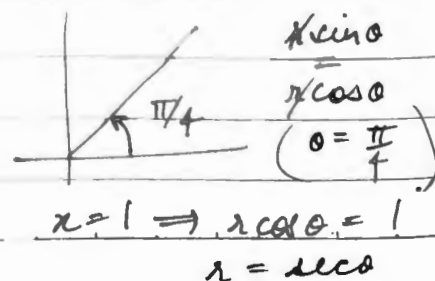 r sinθ
=
r cosθ
π/4
(θ = π/4)
x = 1 ⟹ r cosθ = 1
r = secθ